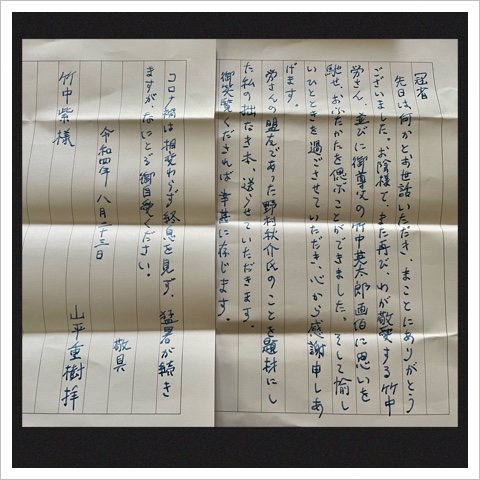 冠省
先日は何かとお世話いただき、まことにありがとう
ございました。お陰様で、また再び、わが敬愛する竹中
労さん、並びに御尊父の竹中英太郎画伯に思いを
馳せ、おふたかたを偲ぶことができました。そして愉し
いひとときを過ごさせていただき、心から感謝申しあ
げます。
労さんの盟友であった野村秋介氏のことを題材にし
た私の拙なき本、送らせていただきます。
御笑覧くだされば幸甚に存じます。
コロナ禍は相変わらず終息を見ず、猛暑が続き
ますが、なにとぞ御自愛ください。
敬具
令和四年 八月二十三日
山平重樹拝
竹中紫様